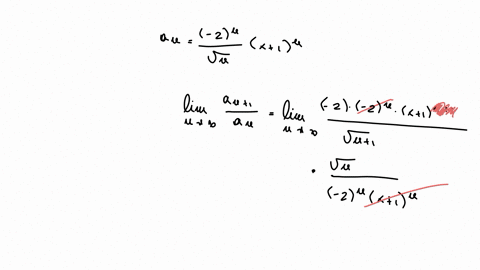 aₙ = (-2)ⁿ / √n (x+1)ⁿ
lim n→∞ aₙ₊₁ / aₙ = lim n→∞ (-2) · (-2)ⁿ · (x+1) / √n+1
· √n / (-2)ⁿ (x+1)ⁿ